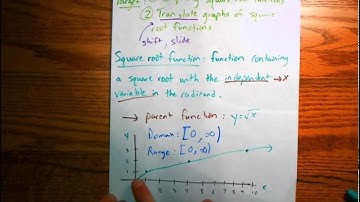 Target
square root functions
② Translate graphs of square
root functions
shift, slide
Square root function: function containing
a square root with the independent → x
variable in the radicand.
→ parent function: y=√x
Domain: [0, ∞)
Range: [0, ∞)
y
3
2
1
1 2 3 4 5 6 7 8 9 10 x